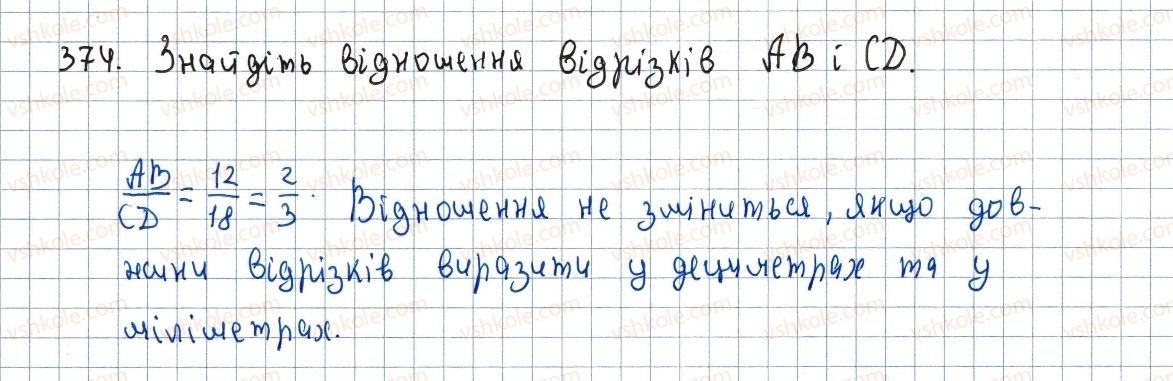 374. Знайдіть відношення відрізків AB і CD.
AB/CD = 12/18 = 2/3. Відношення не зміниться, якщо дов-
жини відрізків виразити у дециметрах та у
міліметрах.